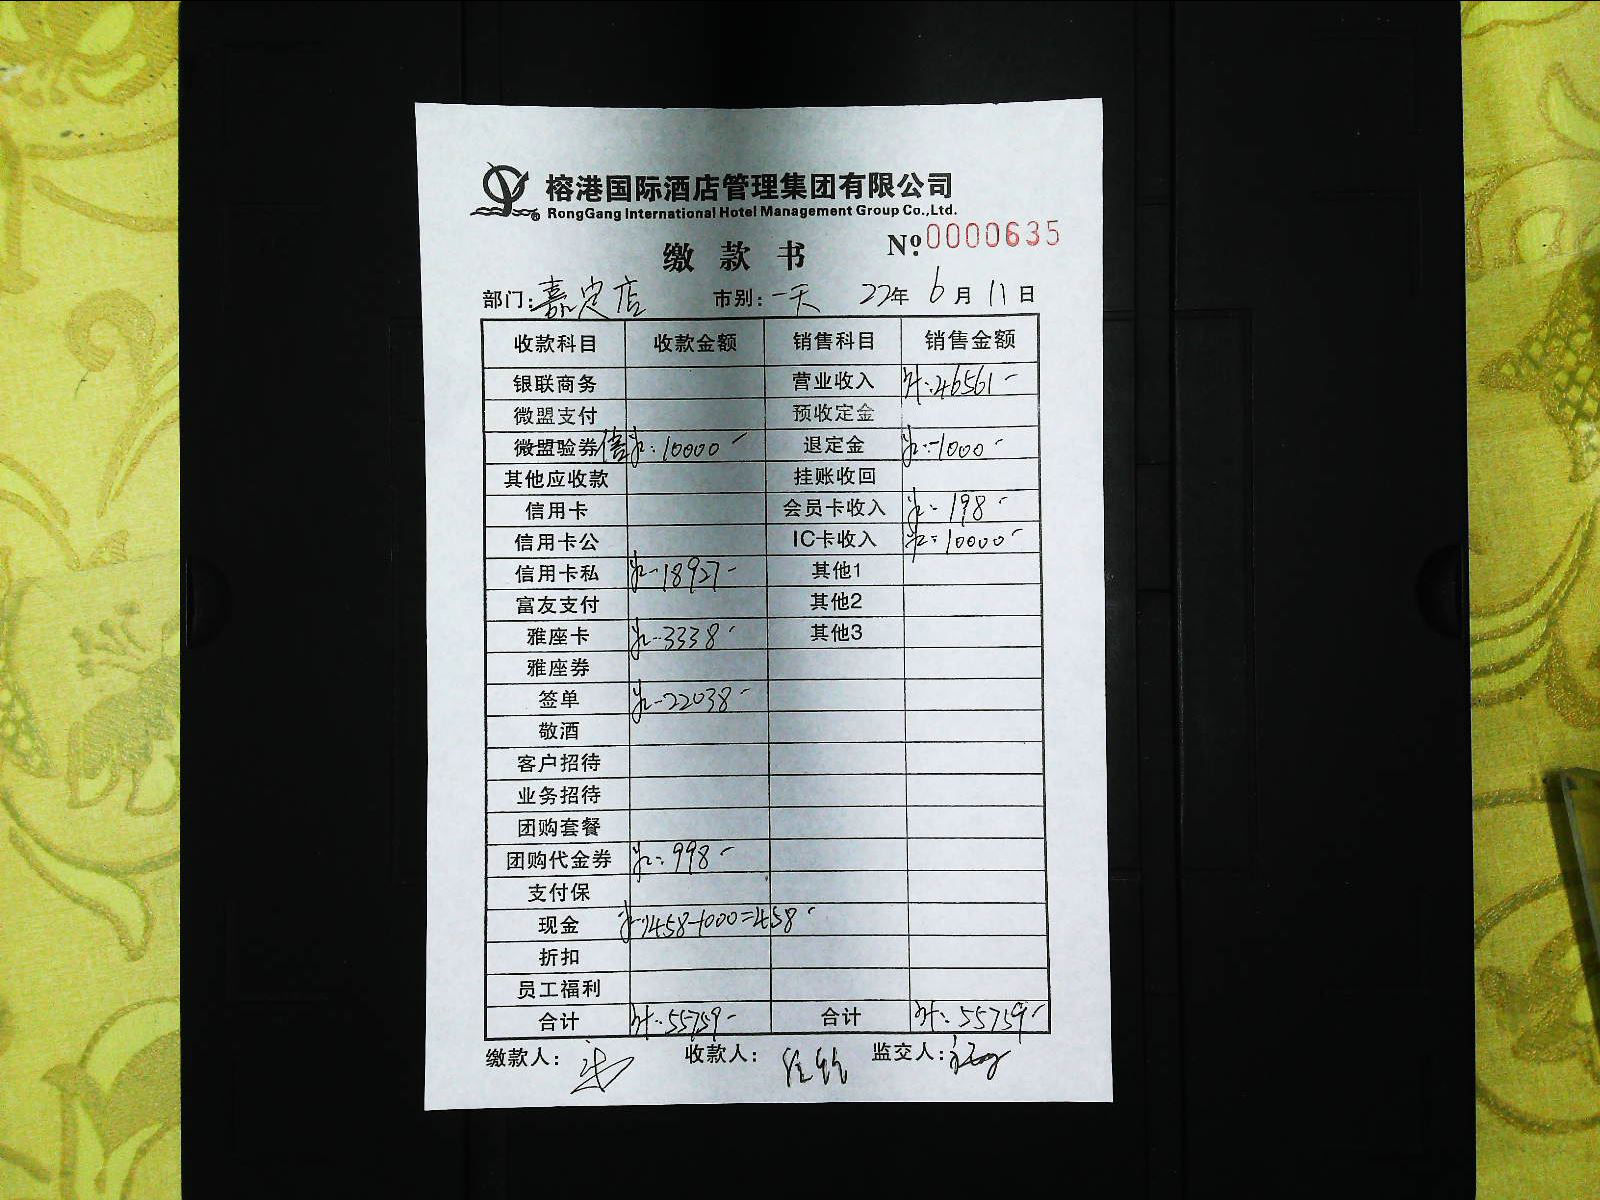 榕港国际酒店管理集团有限公司
RongGang International Hotel Management Group Co.,Ltd.
缴款书 №.0000635
部门:嘉定店 市别:一天 22年6月11日
收款科目 收款金额 销售科目 销售金额
银联商务 营业收入 46561-
微盟支付 预收定金
微盟验券 10000- 退定金 -1000-
其他应收款 挂账收回
信用卡 会员卡收入 198-
信用卡公 IC卡收入 10000-
信用卡私 18927- 其他1
富友支付 其他2
雅座卡 3338- 其他3
雅座券
签单 22038-
敬酒
客户招待
业务招待
团购套餐
团购代金券 998-
支付保
现金 1458-1000=458-
折扣
员工福利
合计 55759- 合计 55759-
缴款人: 收款人: 监交人: